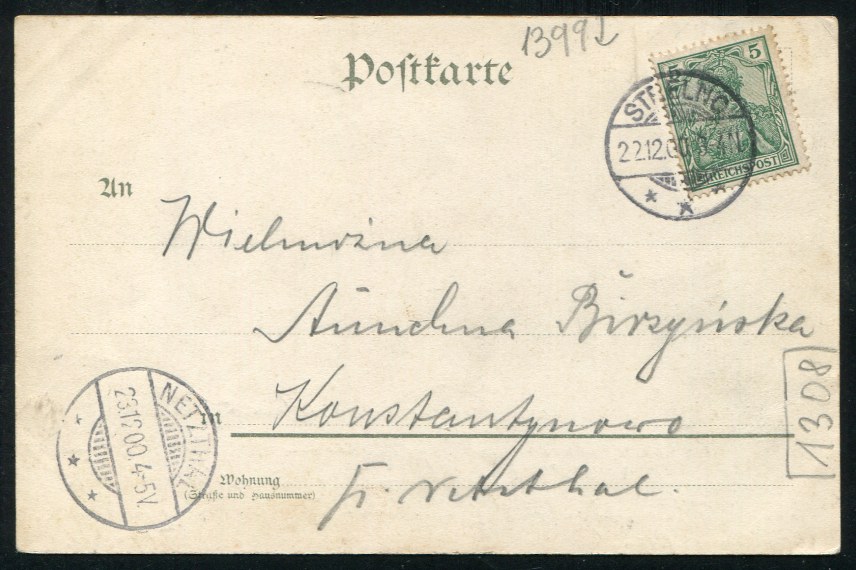 13992
Postkarte
5 5
REICHSPOST
STRELNO
22.12.00 3-4N.
An
Wielmożna
Birzyńska
Konstantynowo
in
NETZTHAL
23.12.00.4-5V.
Wohnung
(Straße und Hausnummer)
1308